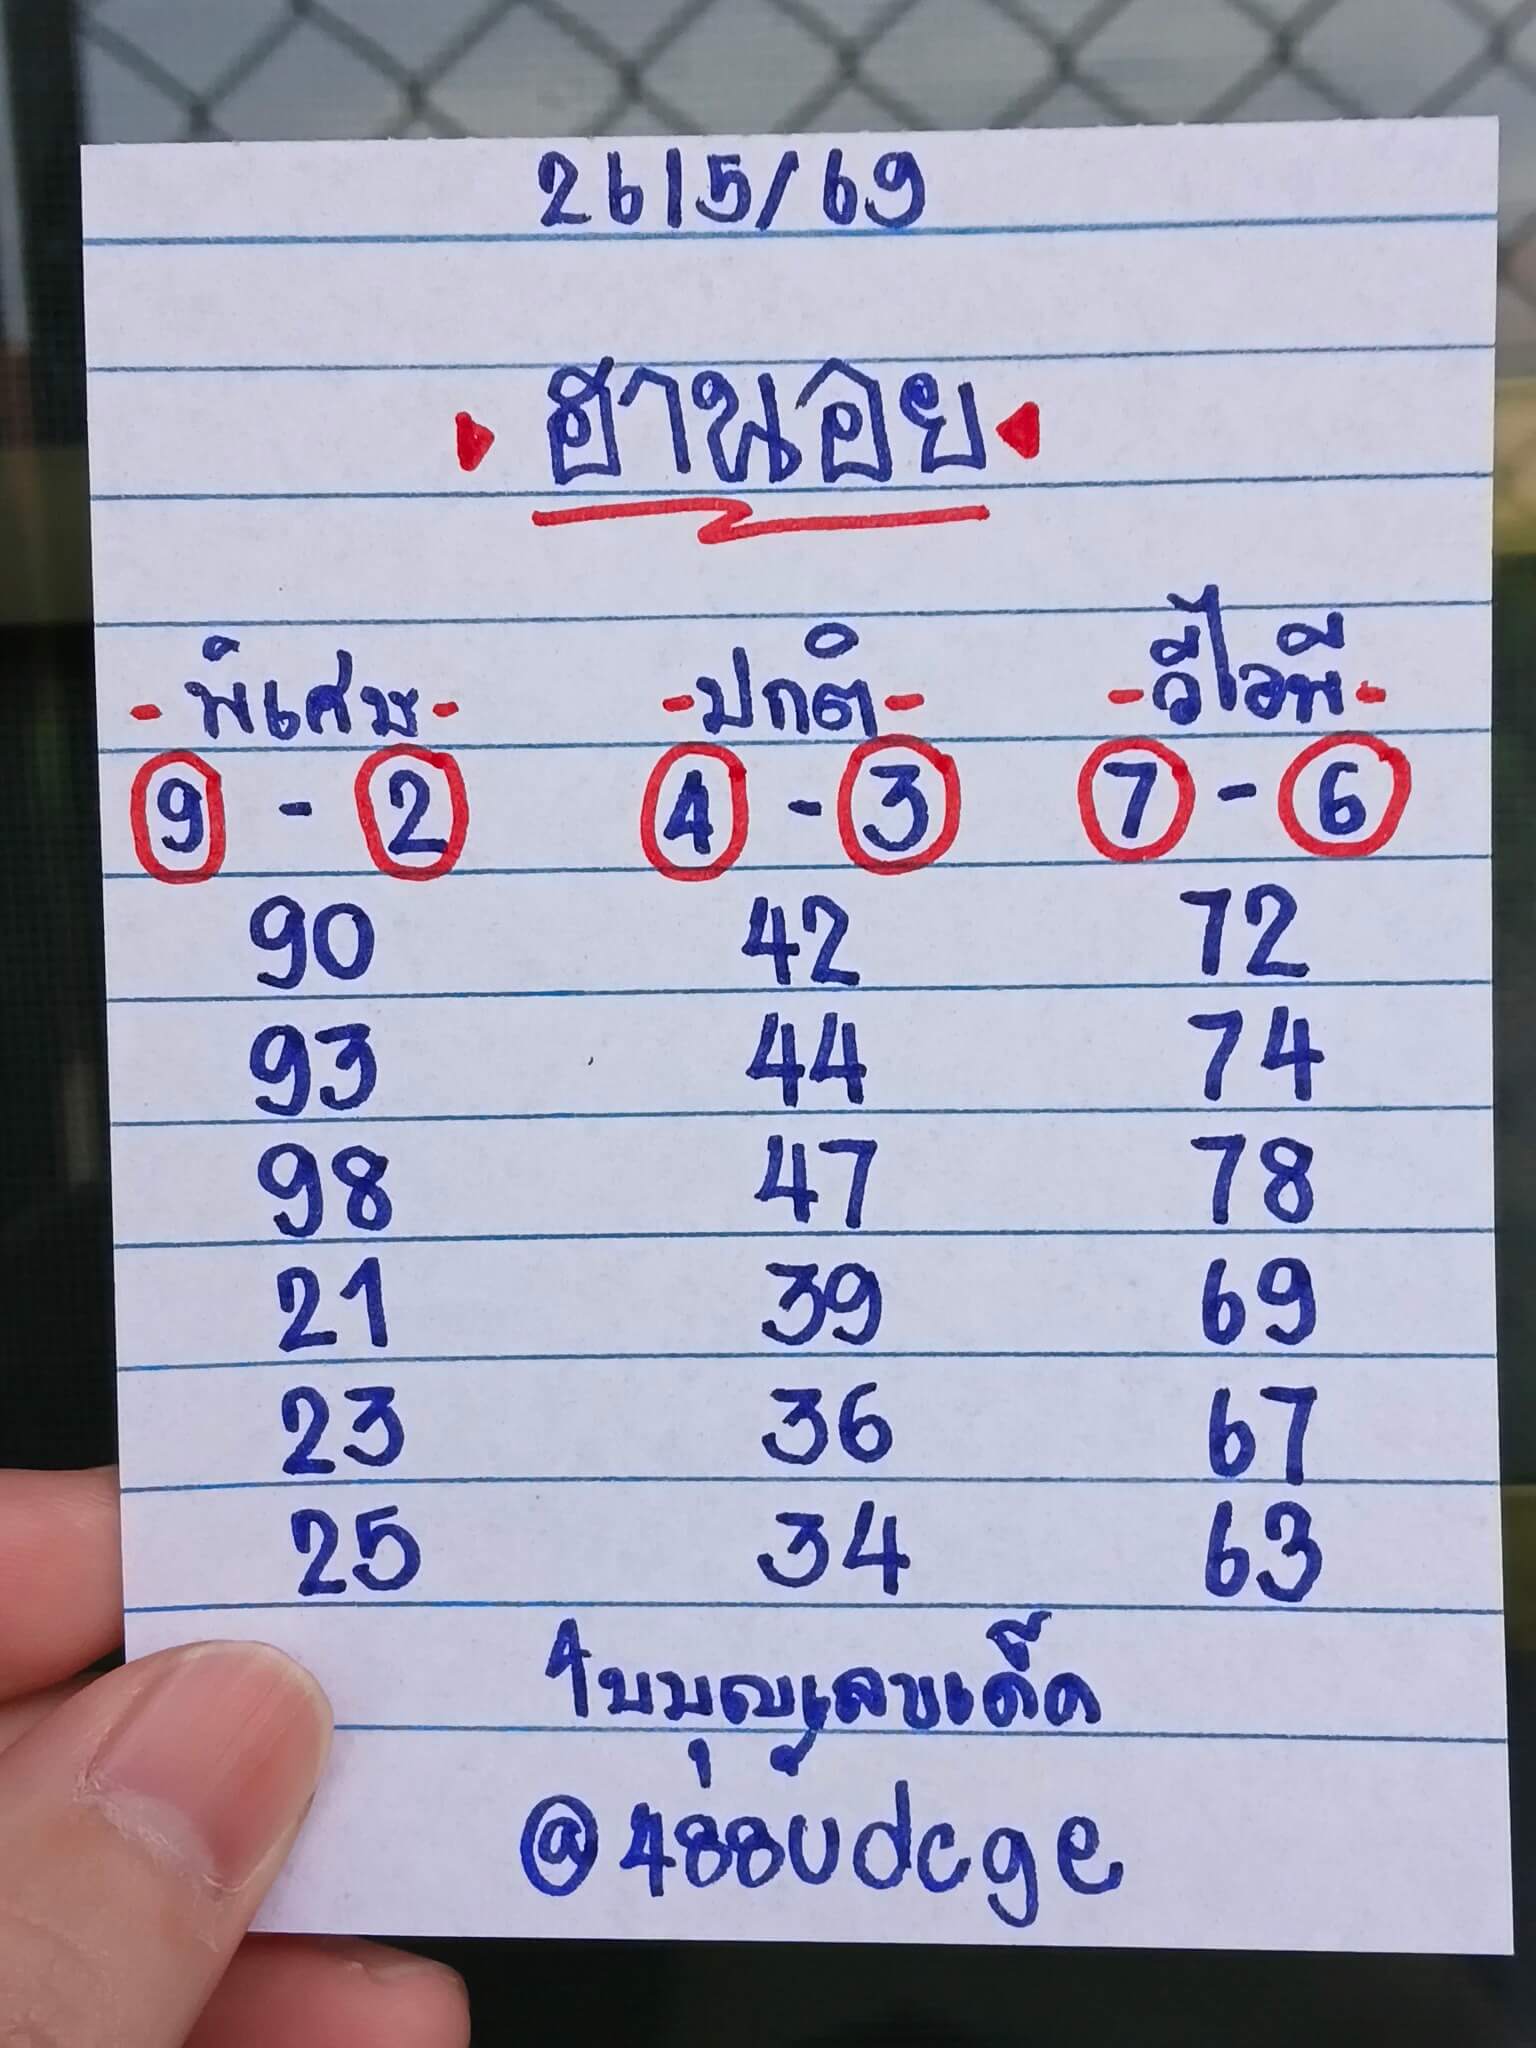 26/5/69
ฮานอย
-พิเศษ- -ปกติ- -วีไอพี-
9 - 2 4 - 3 7 - 6
90 42 72
93 44 74
98 47 78
21 39 69
23 36 67
25 34 63
ใบบุญเลขเด็ด
@488udcge